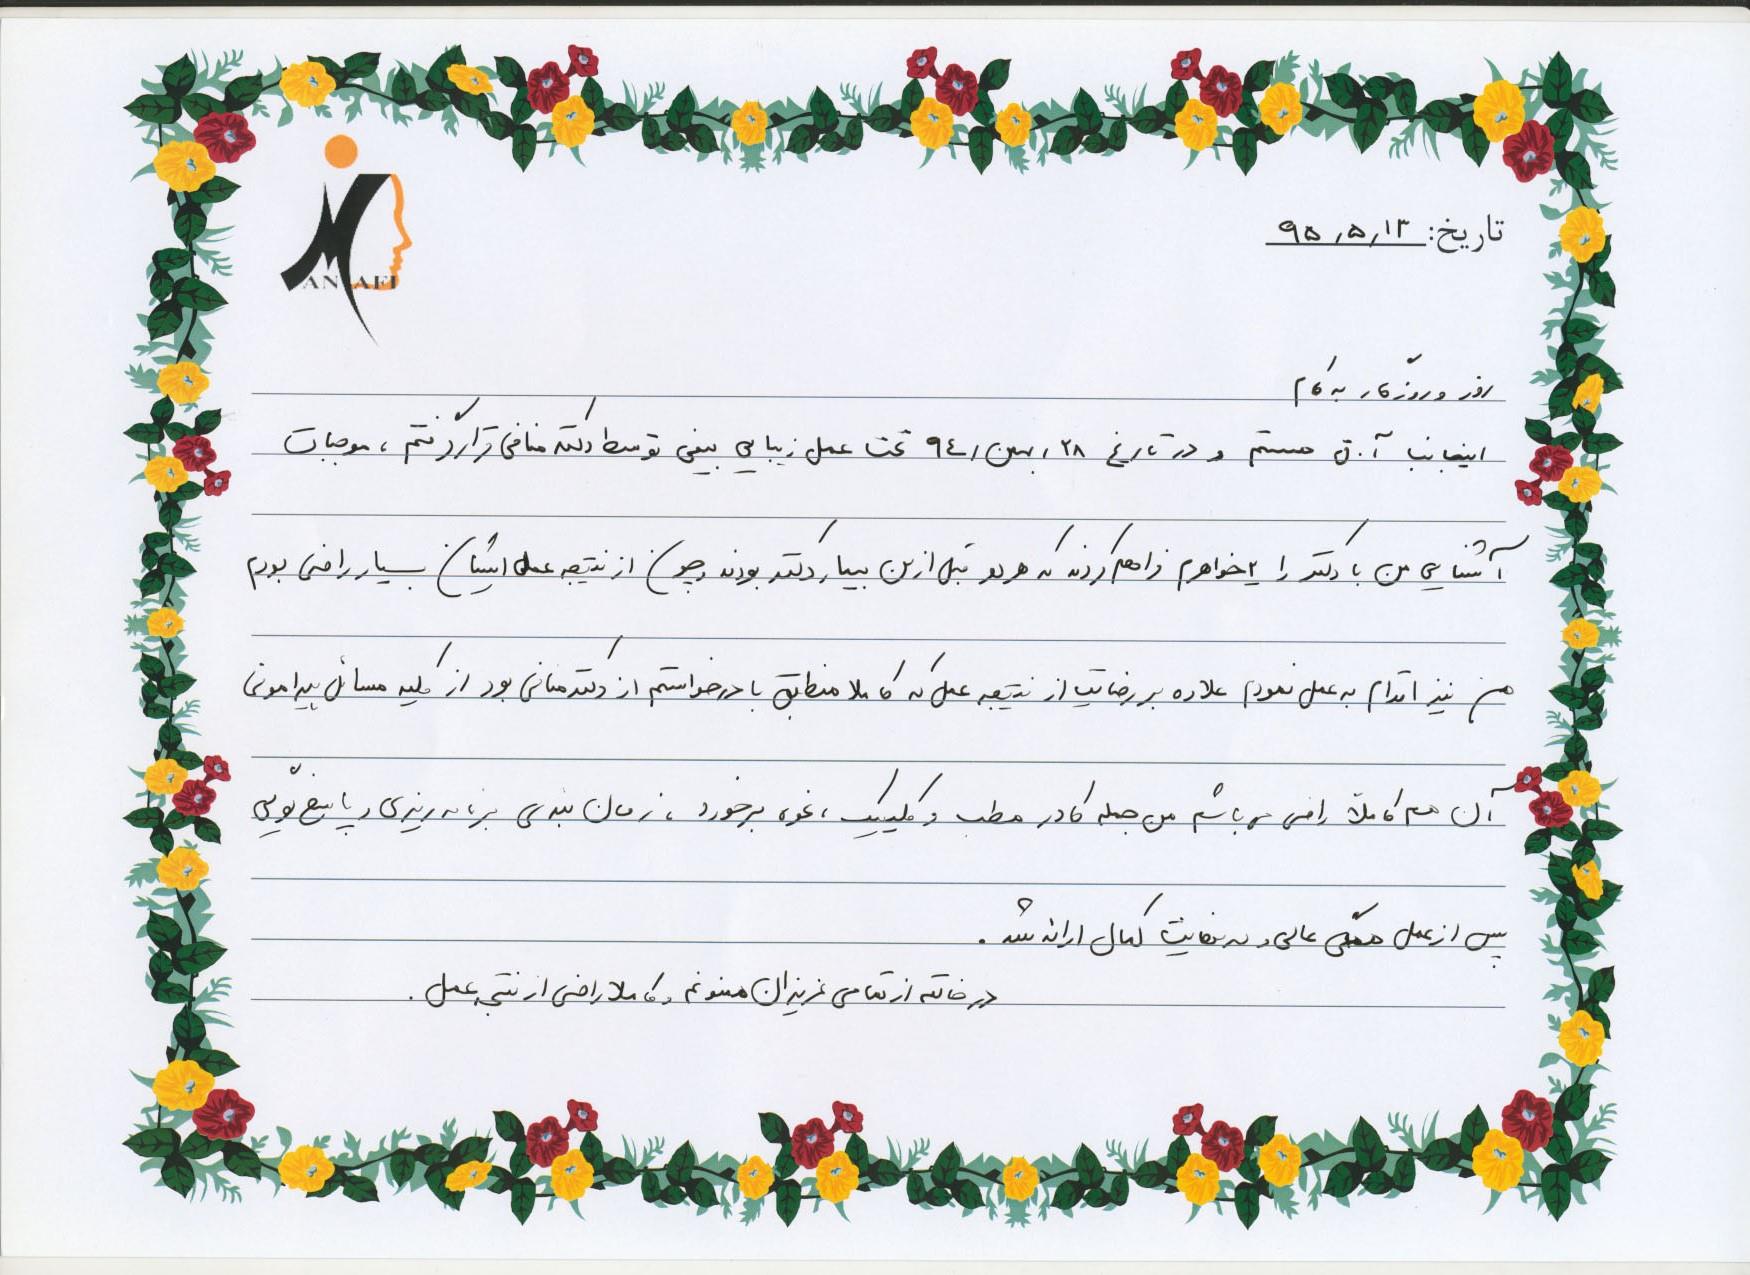 MANAFI
تاریخ: ۹۵/۵/۱۳
روز و روزگار به کام
اینجانب آ.ق هستم و در تاریخ ۲۸/بهمن/۹۴ تحت عمل زیبایی بینی توسط دکتر منافی قرار گرفتم، موجبات
آشنایی من با دکتر را ۲ خواهرم فراهم کردند که هر دو قبل از من بیمار دکتر بودند و چون از نتیجه عمل ایشان بسیار راضی بودم
من نیز اقدام به عمل نمودم علاوه بر رضایت از نتیجه عمل که کاملا منطبق با درخواستم از دکتر منافی بود از کلیه مسائل پیرامونی
آن هم کاملاً راضی می باشم من جمله کادر مطب و کلینیک، نحوه برخورد، زمان بندی برنامه ریزی و پاسخ گویی
پس از عمل همگی عالی و به نهایت کمال ارائه شد.
در خاتمه از تمامی عزیزان ممنونم و کاملا راضی از نتیجه عمل.